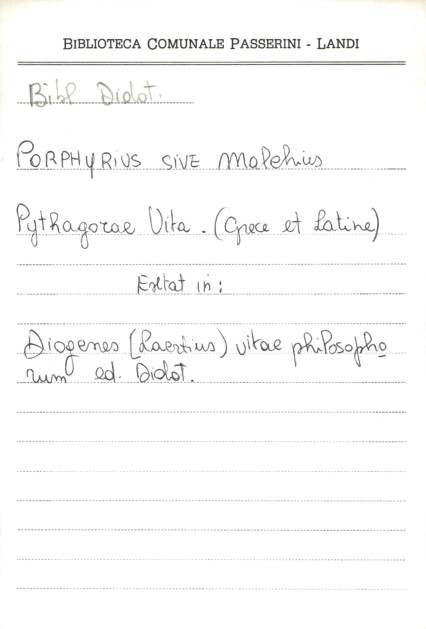 BIBLIOTECA COMUNALE PASSERINI - LANDI
Bibl Didot.
PORPHYRIUS SIVE Malchius
Pythagorae Vita. (Grece et Latine)
Exstat in:
Diogenes (Laertius) vitae philosopho
rum ed. Didot.